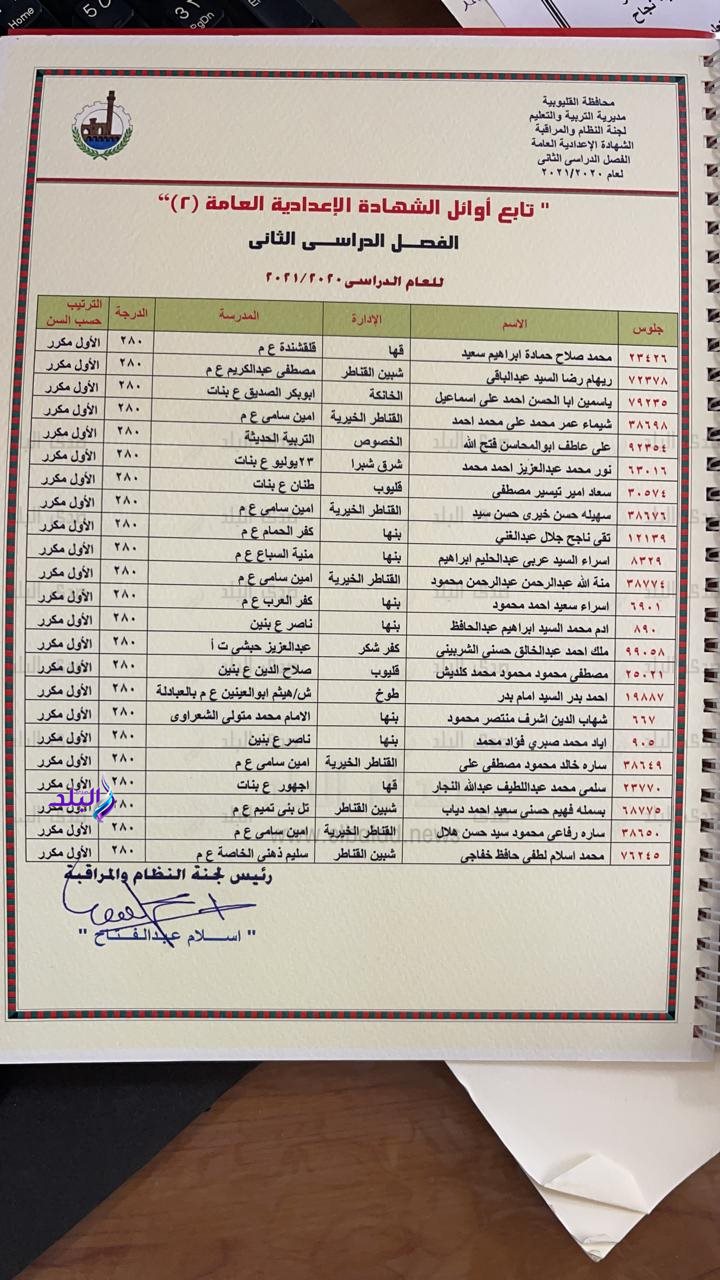 Home
PgDn
نجاح
محافظة القليوبية
مديرية التربية والتعليم
لجنة النظام والمراقبة
الشهادة الإعدادية العامة
الفصل الدراسى الثانى
لعام ٢٠٢١/٢٠٢٠
" تابع أوائل الشهادة الإعدادية العامة (٢)"
الفصل الدراسى الثانى
للعام الدراسى ٢٠٢١/٢٠٢٠
جلوس الاسم الإدارة المدرسة الدرجة الترتيب حسب السن
٢٣٤٢٦ محمد صلاح حمادة ابراهيم سعيد قها قلقشندة ع م ٢٨٠ الأول مكرر
٧٢٣٧٨ ريهام رضا السيد عبدالباقى شبين القناطر مصطفى عبدالكريم ع م ٢٨٠ الأول مكرر
٧٩٢٣٥ ياسمين ابا الحسن احمد على اسماعيل الخانكة ابوبكر الصديق ع بنات ٢٨٠ الأول مكرر
٣٨٦٩٨ شيماء عمر محمد على محمد احمد القناطر الخيرية امين سامى ع م ٢٨٠ الأول مكرر
٩٢٣٥٤ على عاطف ابوالمحاسن فتح الله الخصوص التربية الحديثة ٢٨٠ الأول مكرر
٦٣٠١٦ نور محمد عبدالعزيز احمد محمد شرق شبرا ٢٣يوليو ع بنات ٢٨٠ الأول مكرر
٣٠٥٧٤ سعاد امير تيسير مصطفى قليوب طنان ع بنات ٢٨٠ الأول مكرر
٣٨٦٧٦ سهيله حسن خيرى حسن سيد القناطر الخيرية امين سامى ع م ٢٨٠ الأول مكرر
١٢١٣٩ تقى ناجح جلال عبدالغني بنها كفر الحمام ع م ٢٨٠ الأول مكرر
٨٣٢٩ اسراء السيد عربى عبدالحليم ابراهيم بنها منية السباع ع م ٢٨٠ الأول مكرر
٣٨٧٧٤ منة الله عبدالرحمن عبدالرحمن محمود القناطر الخيرية امين سامى ع م ٢٨٠ الأول مكرر
٦٩٠١ اسراء سعيد احمد محمود بنها كفر العرب ع م ٢٨٠ الأول مكرر
٨٩٠ ادم محمد السيد ابراهيم عبدالحافظ بنها ناصر ع بنين ٢٨٠ الأول مكرر
٩٩٠٥٨ ملك احمد عبدالخالق حسنى الشربينى كفر شكر عبدالعزيز حبشى ت أ ٢٨٠ الأول مكرر
٢٥٠٢١ مصطفى محمود محمود محمد كلديش قليوب صلاح الدين ع بنين ٢٨٠ الأول مكرر
١٩٨٨٧ احمد بدر السيد امام بدر طوخ ش/هيثم ابوالعينين ع م بالعبادلة ٢٨٠ الأول مكرر
٦٦٧ شهاب الدين اشرف منتصر محمود بنها الامام محمد متولى الشعراوى ٢٨٠ الأول مكرر
٩٠٥ اياد محمد صبري فؤاد محمد بنها ناصر ع بنين ٢٨٠ الأول مكرر
٣٨٦٤٩ ساره خالد محمود مصطفى على القناطر الخيرية امين سامى ع م ٢٨٠ الأول مكرر
٢٣٧٧٠ سلمى محمد عبداللطيف عبدالله النجار قها اجهور ع بنات ٢٨٠ الأول مكرر
٦٨٧٧٥ بسمله فهيم حسنى سعيد احمد دياب شبين القناطر تل بنى تميم ع م ٢٨٠ الأول مكرر
٣٨٦٥٠ ساره رفاعى محمود سيد حسن هلال القناطر الخيرية امين سامى ع م ٢٨٠ الأول مكرر
٧٦٢٤٥ محمد اسلام لطفى حافظ خفاجى شبين القناطر سليم ذهنى الخاصة ع م ٢٨٠ الأول مكرر
البلد
رئيس لجنة النظام والمراقبة
" اسلام عبدالفتاح "